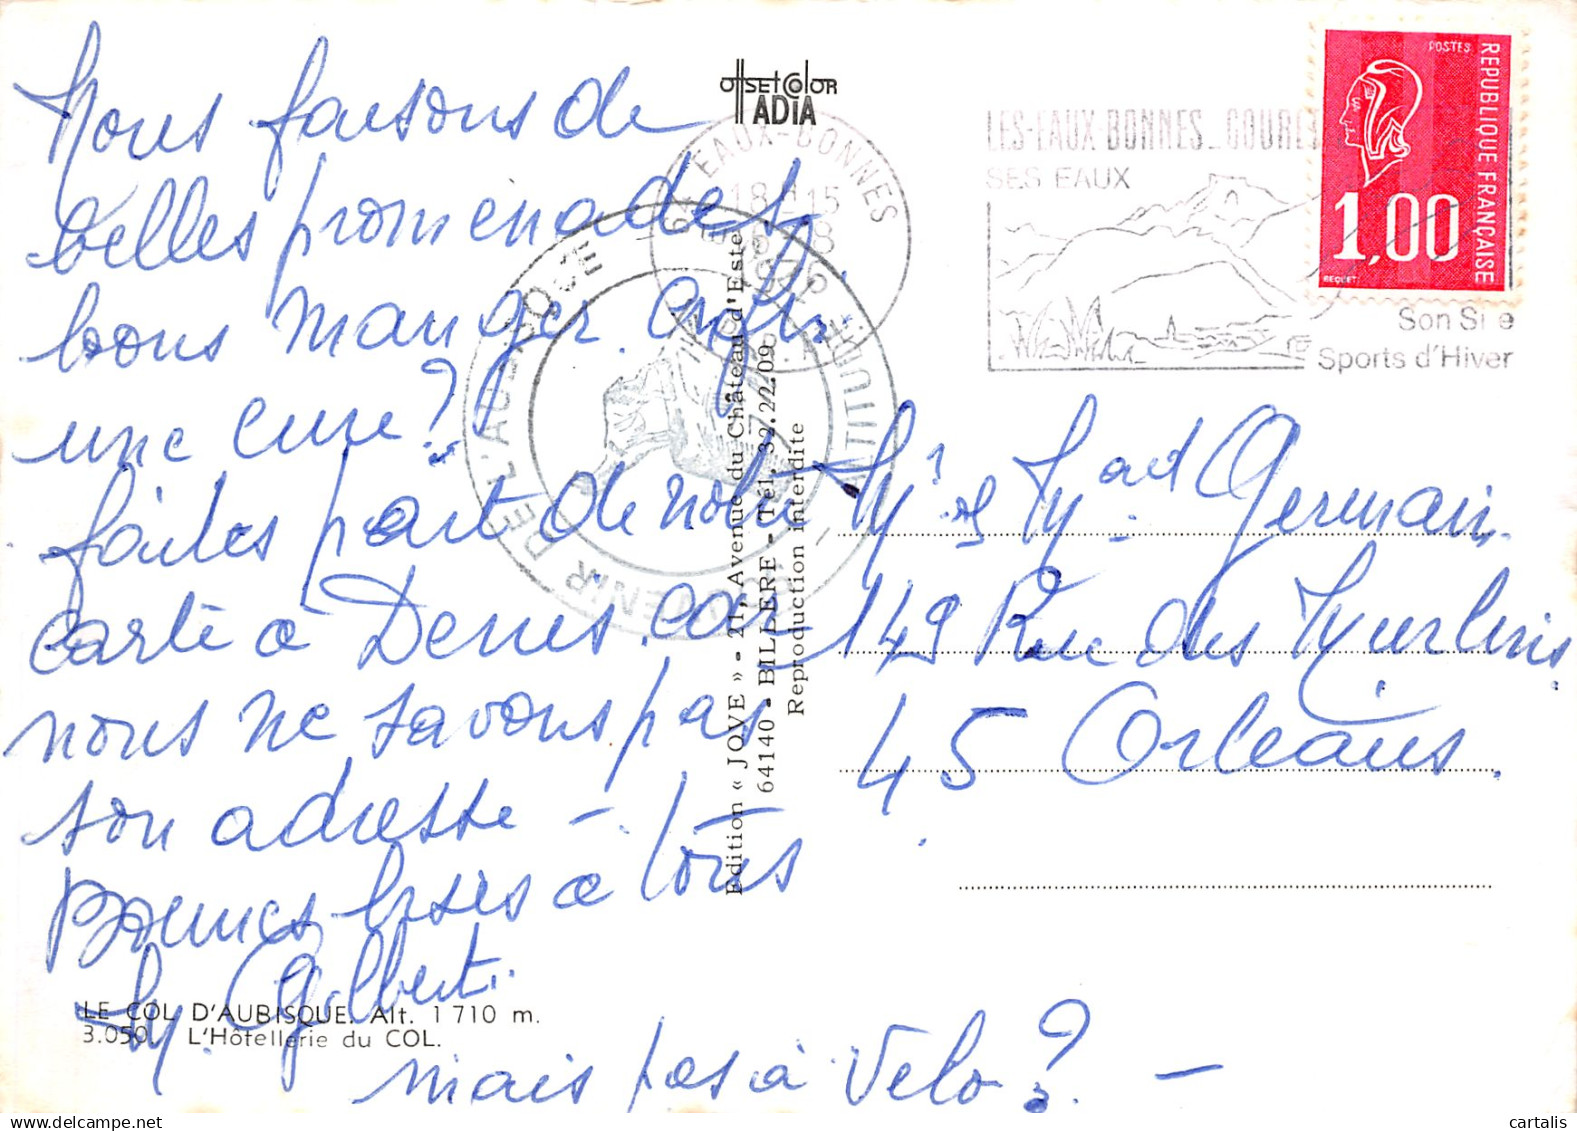 Nous faisons de
belles promenades,
bons manger. Enfin
une cure?
faites part de notre
carte à Denis car
nous ne savons pas
son adresse — tous
Bonnes bises à tous
M. Gilberte
mais pas à Velo? —
LE COL D'AUBISQUE. Alt. 1 710 m.
3.050. L'Hôtellerie du COL.
OFFSET COLOR
ADIA
Edition « JOVE » - 21, Avenue du Château d'Este
64140 - BILLERE - Tél. 32.22.09
Reproduction interdite
EAUX-BONNES
18 H 15
SOUVENIR DE L'AUBISQUE
ALTITUDE
LES-EAUX-BONNES_GOURETTE
SES EAUX
Son Site
Sports d'Hiver
POSTES
REPUBLIQUE FRANÇAISE
1,00
BEQUET
Mr et Mme Germain
149 Rue des Murlins
45 Orléans.